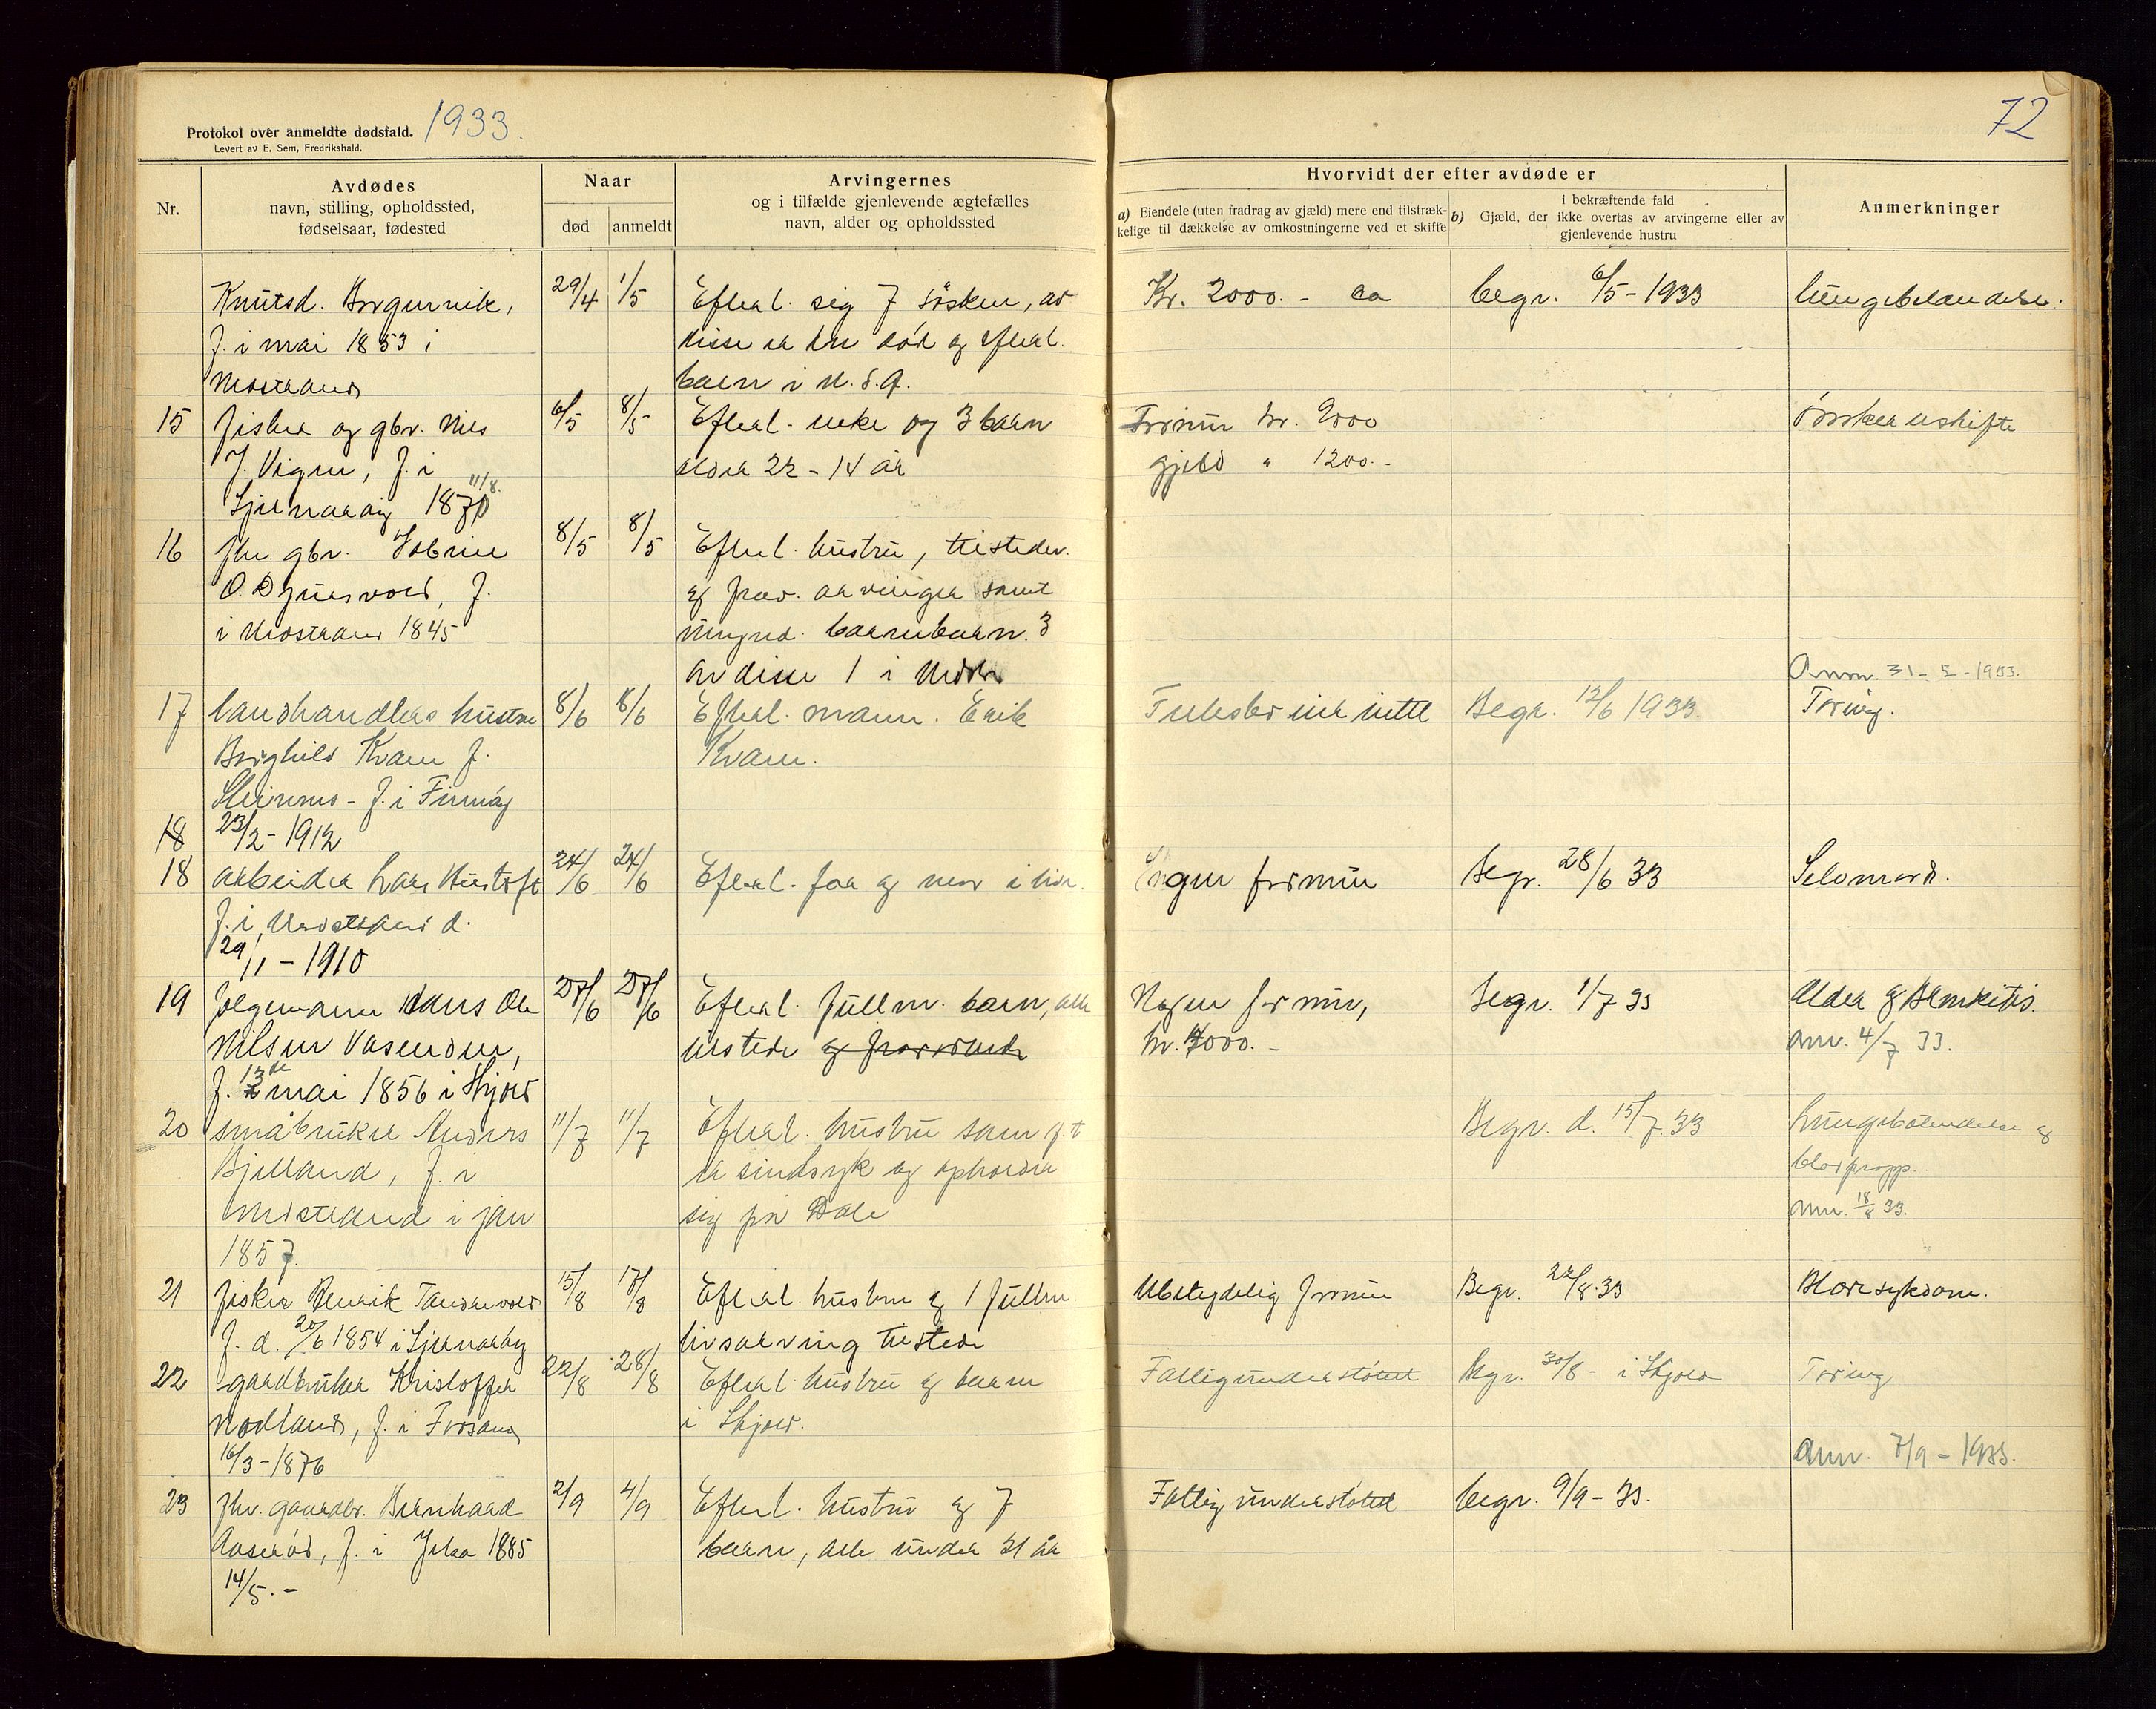 Protokol over anmeldte dødsfald. 1933.
Levert av E. Sem, Fredrikshald.
72
Nr.
Avdødes
navn, stilling, opholdssted,
fødselsaar, fødested
Naar
død
anmeldt
Arvingernes
og i tilfælde gjenlevende ægtefælles
navn, alder og opholdssted
Hvorvidt der efter avdøde er
a) Eiendele (uten fradrag av gjæld) mere end tilstræk-
kelige til dækkelse av omkostningerne ved et skifte
i bekræftende fald
b) Gjæld, der ikke overtas av arvingerne eller av
gjenlevende hustru
Anmerkninger
Knutsd.
29/4 1/5
Efterl. sig 7 søsken, av
Kr. 2000.- ca
begr. 6/5-1933
f. i mai 1853 i
disse er en død og efterl.
barn i U.S.A.
15 fisker og gbr. Nils
6/5 8/5
Efterl. enke og 3 barn
Formue kr. 2000
ønsker uskifte
J. Vigen, f. i
alder 22-14 år
gjeld " 1200.-
Sjernarøy 11/8.
16 fhv. gbr.
8/5 8/5
Efterl. hustru, tilstedev.
og frav. arvinger samt
i 1845
umynd. barnebarn. 3
av disse 1 i
Anm. 31-5-1933.
17 landhandlers hustru
8/6 8/6
Efterl. mann. Erik
Begr. 12/6 1933.
Tæring.
Borghild Kvam f.
Kvam.
f. i Finnøy
18 23/2-1912
18 arbeider Lars
24/6 24/6
Efterl. far og mor i live.
Ingen formue
Begr. 28/6 33
Selvmord.
f. i d.
29/11-1910
19 Ole
27/6 27/6
Efterl. fullm. barn, alle
Nogen formue,
Begr. 1/7 33
Alder og Bronkitis.
Nilsen Vasenden,
tilstede
kr.
Anm. 4/7 33.
f. 13de mai 1856 i Skjold
20 småbruker Anders
11/7 11/7
Efterl. hustru som f.t
Begr. d. 15/7.33
Lungebetendelse og
Bjelland, f. i
er sindsyk og opholder
blodpropp.
i jan.
sig på Dale
Anm. 18/8 33.
1857.
21 fisker Henrik
15/8 17/8
Efterl. hustru og 1 fullm.
Ubetydelig formue
Begr. 22/8.33
Blæresykdom.
f. d. 20/6 1854 i Sjernarøy
livsarving tilstede
22 gaardbruker Kristoffer
22/8 28/8
Efterl. hustru og barn
Fattigunderstøttet
Begr. 30/8- i Skjold
Tæring
Nodland, f. i Forsand
i Skjold.
16/3-1876
Anm. 7/9-1933.
23 fhv. gaardbr. Bernhard
2/9 4/9
Efterl. hustru og 7
Fattig understøttet
begr. 9/9-33.
f. i Jelsa 1885
barn, alle under 21 år
14/5.-